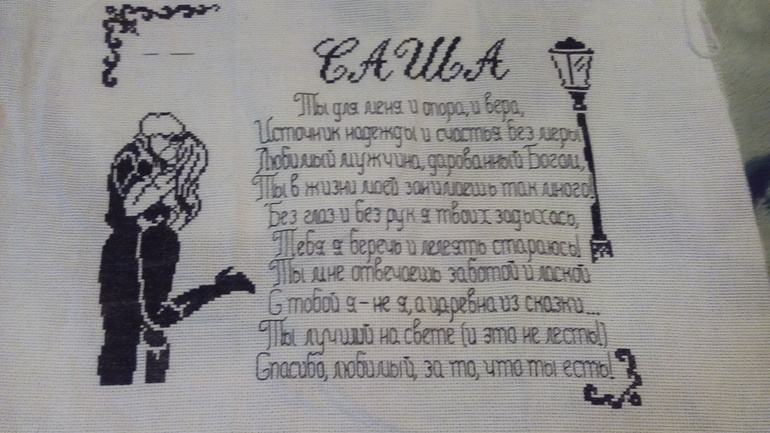 САША
Ты для меня и опора, и вера,
Источник надежды и счастья без меры!
Любимый мужчина, дарованный Богом,
Ты в жизни моей занимаешь так много!
Без глаз и без рук я твоих задыхаюсь,
Тебя я беречь и лелеять стараюсь!
Ты мне отвечаешь заботой и лаской
С тобой я - не я, а царевна из сказки...
Ты лучший на свете (и это не лесть!)
Спасибо, любимый, за то, что ты есть!